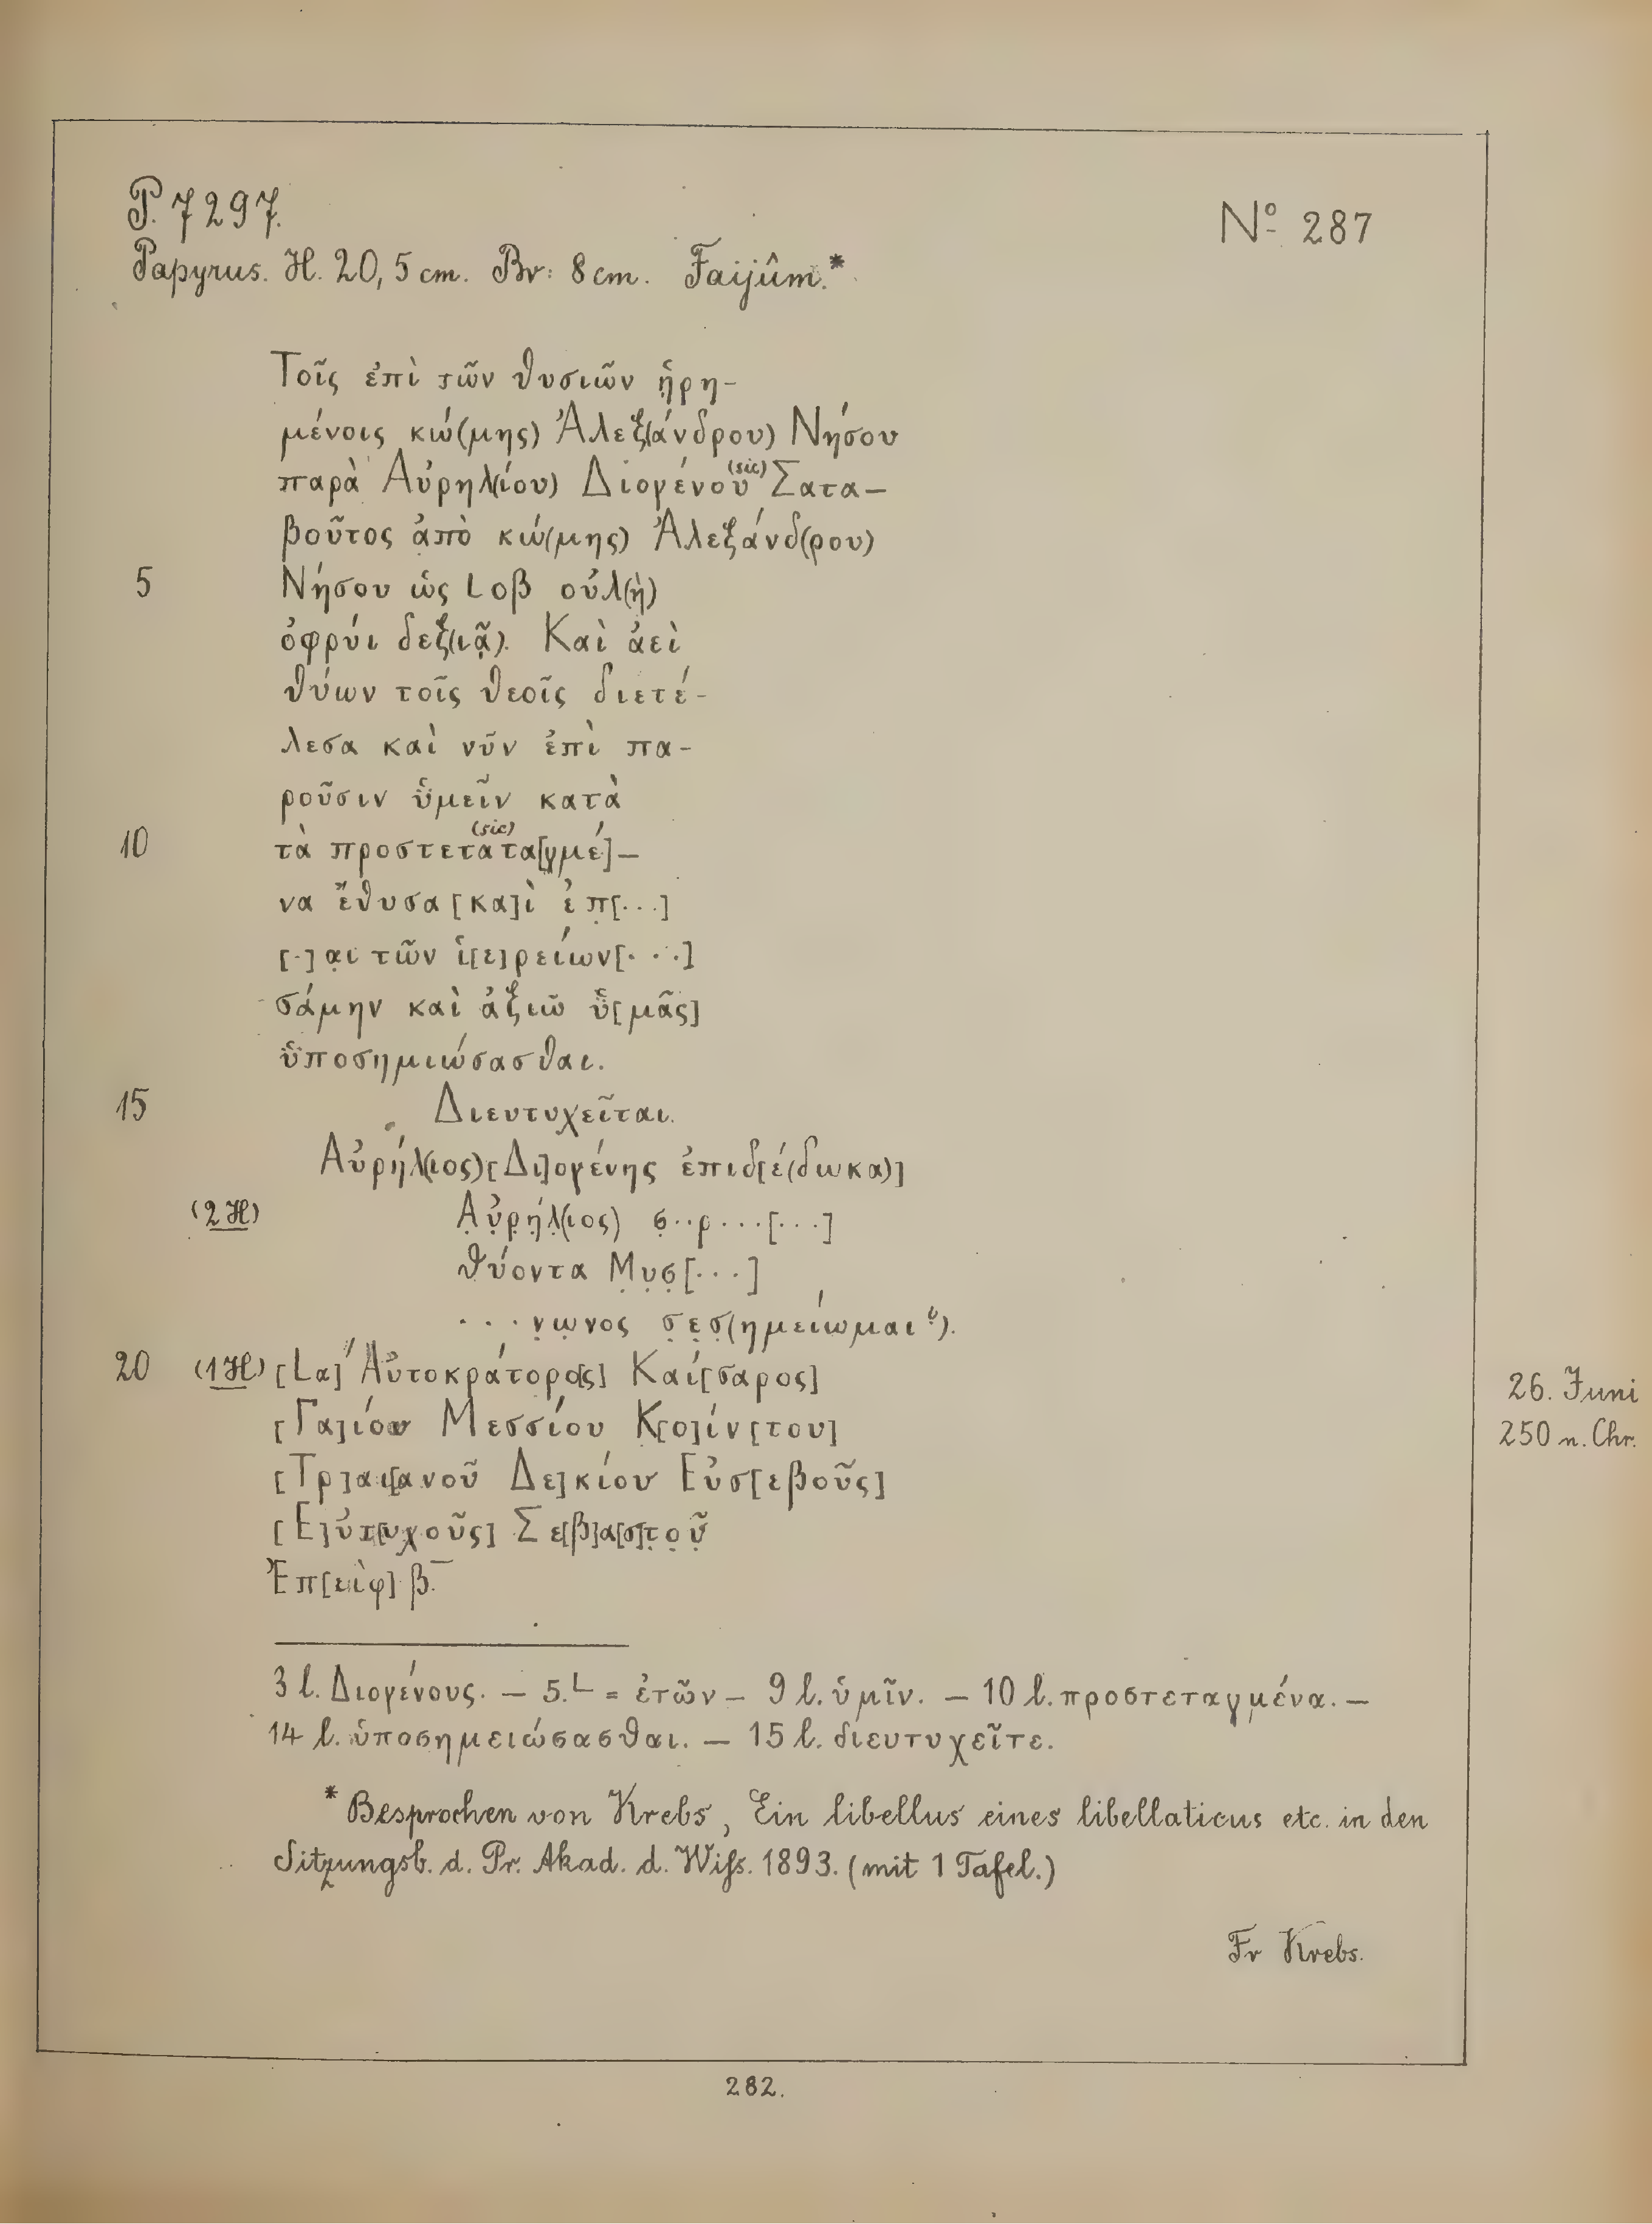 P. 7297.
Nº 287
Papyrus. H. 20,5 cm. Br: 8 cm. Faijûm.*
Τοῖς ἐπὶ τῶν θυσιῶν ᾑρη-
μένοις κώ(μης) Ἀλεξ(άνδρου) Νήσου
παρὰ Αὐρηλ(ίου) Διογένου (sic) Σατα-
βοῦτος ἀπὸ κώ(μης) Ἀλεξάνδ(ρου)
5 Νήσου ὡς Lοβ οὐλ(ὴ)
ὀφρύι δεξ(ιᾷ). Καὶ ἀεὶ
θύων τοῖς θεοῖς διετέ-
λεσα καὶ νῦν ἐπὶ πα-
ροῦσιν ὑμεῖν κατὰ
10 τὰ προστετατα[γμέ]- (sic)
να ἔθυσα [κα]ὶ ἐπ̣[...]
[.]α̣ι τῶν ἱ[ε]ρείων[...]
σάμην καὶ ἀξιῶ ὑ̈[μᾶς]
ὑ̈ποσημιώσασθαι.
15 Διευτυχεῖται.
Αὐρήλ(ιος) [Δι]ογένης ἐπιδ[έ(δωκα)]
(2 H) Α̣ὐ̣ρ̣ή̣λ̣(ιος) σ̣..ρ...[...]
θύοντα Μ̣υ̣σ̣[...]
...ν̣ω̣νος σ̣ε̣σ̣(ημείωμαι?).
20 (1 H) [Lα] Αὐτοκράτορο[ς] Καί[σαρος]
[Γα]ίου Μεσσίου Κ[ο]ίν[του]
[Τρ]αι[ανοῦ Δε]κίου Εὐσ[εβοῦς]
[Ε]ὐτ[υχοῦς] Σε[β]α[σ]τ̣ο̣ῦ̣
Ἐπ[εὶφ] β̅.
26. Juni
250 n. Chr.
3 l. Διογένους. — 5. L = ἐτῶν — 9 l. ὑμῖν. — 10 l. προστεταγμένα. —
14 l. ὑποσημειώσασθαι. — 15 l. διευτυχεῖτε.
* Besprochen von Krebs, Ein libellus eines libellaticus etc. in den
Sitzungsb. d. Pr. Akad. d. Wiſs. 1893. (mit 1 Tafel.)
Fr Krebs.
282.